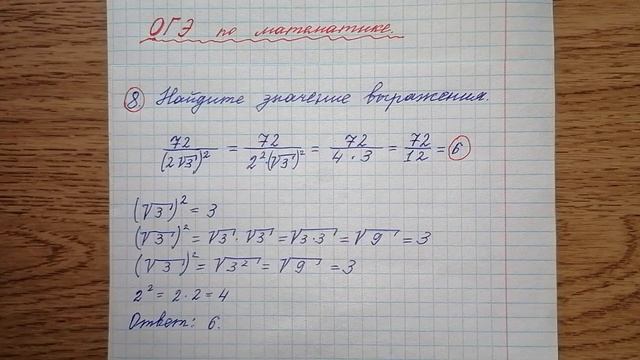 ОГЭ по математике.
8 Найдите значение выражения.
72/(2√3)² = 72/2²·(√3)² = 72/4·3 = 72/12 = 6
(√3)² = 3
(√3)² = √3·√3 = √3·3 = √9 = 3
(√3)² = √3² = √9 = 3
2² = 2·2 = 4
Ответ: 6.